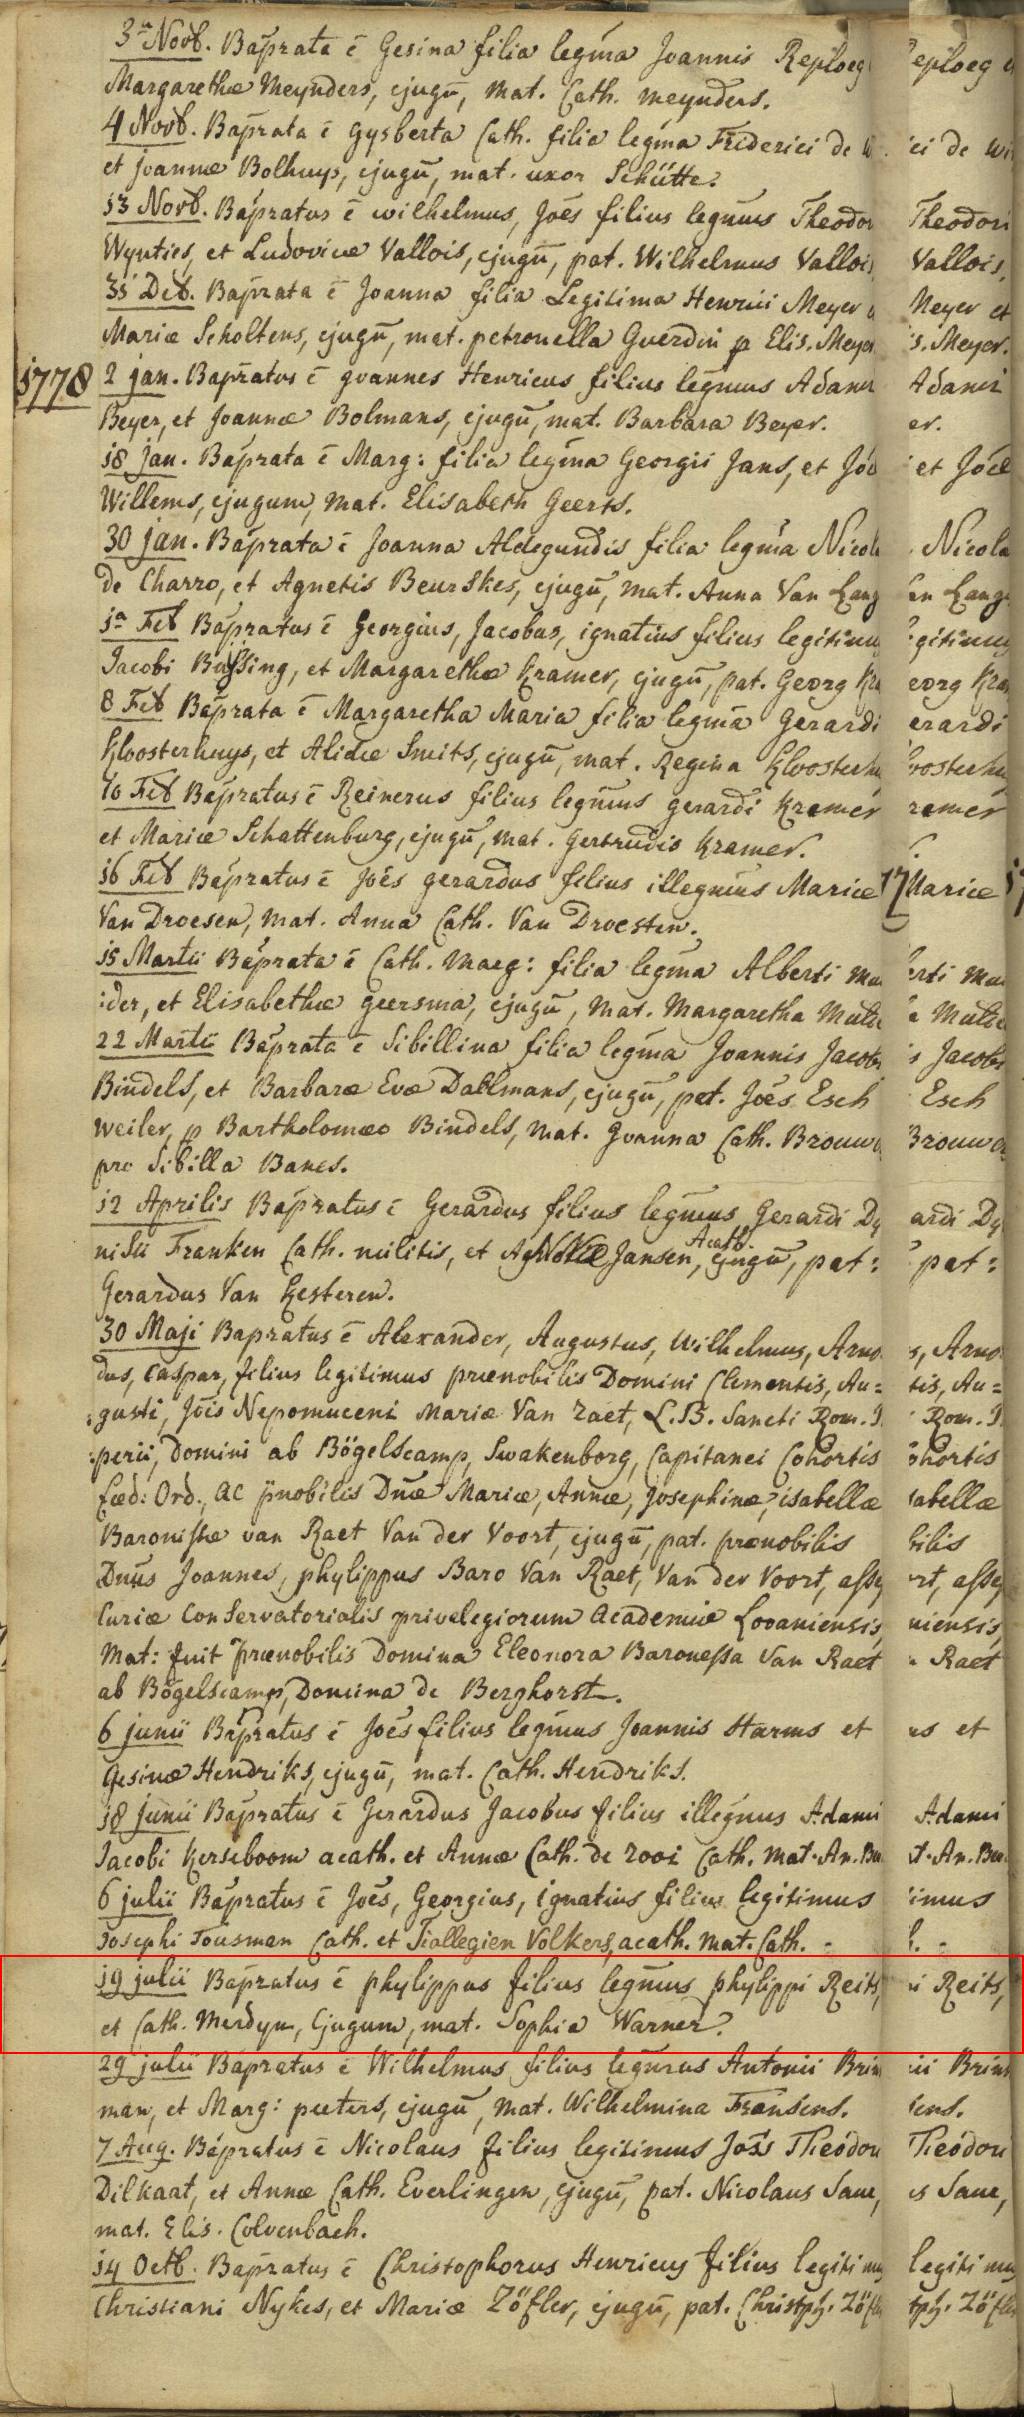 3ª Novb. Baprata ē Gesina filia legīma Joannis Reploeg
Margarethæ Meynders, cjugū, Mat. Cath. meynders.
4 Novb. Baprata ē Gysberta Cath. filia legīma Friderici de
et Joannæ Bolhuys, cjugū, mat. uxor Schütte.
13 Novb. Bapratus ē wilhelmus, Joës filius legīmus Theodori
Wynties, et Ludovicæ Vallois, cjugū, pat. Wilhelmus Vallois,
31 Deb. Baprata ē Joanna filia Legitima Henrici Meyer et
Mariæ Scholtens, cjugū, mat. petronella Guerdin p Elis. Meyer.
1778 2 jan. Bapratus ē Joannes Henricus filius legīmus Adami
Beyer, et Joannæ Bolmans, cjugū, mat. Barbara Beyer.
18 jan. Baprata ē Marg: filia legīma Georgii Jans, et Joæ
Willems, cjugum, mat. Elisabeth Geerts.
30 jan. Baprata ē Joanna Aldegundis filia legīma Nicola
de Charro, et Agnetis Beurskes, cjugū, mat. Anna Van Lang
1ª Feb Bapratus ē Georgius, Jacobus, ignatius filius legitimus
Jacobi Bussing, et Margarethæ Kramer, cjugū, pat. Georg Kra
8 Feb Baprata ē Margaretha Maria filia legīma Gerardi
Kloosterhuys, et Alidæ Smits, cjugū, mat. Regina Kloosterhu
10 Feb Bapratus ē Reinerus filius legīmus gerardi Kramer
et Mariæ Schattenburg, cjugū, mat. Gertrudis Kramer.
16 Feb Bapratus ē Joës gerardus filius illegīmus Mariæ
Van Droesen, mat. Anna Cath. Van Droesten.
15 Martii Baprata ē Cath. Marg: filia legīma Alberti mu
:der, et Elisabethæ geersma, cjugū, mat. Margaretha Mulde
22 Martii Baprata ē Sibillina filia legīma Joannis Jacobi
Bindels, et Barbaræ Evæ Dallmans, cjugū, pat. Joës Esch
weiler, p Bartholomæo Bindels, mat. Joanna Cath. Brouwe
pro Sibilla Banes.
12 Aprilis Bapratus ē Gerardus filius legīmus Gerardi Dy
nisii Franken Cath. militis, et Jansen, Acath. cjugū, pat:
Gerardus Van Kesteren.
30 Maji Bapratus ē Alexander, Augustus, Wilhelmus, Arnol
dus, Caspar, filius legitimus prænobilis Domini Clementis, Au=
:gusti, Jöis Nepomuceni Mariæ Van Raet, L. B. Sancti Rom. I
:perii, Domini ab Bögelscamp, Swakenborg, Capitanei Cohortis
fæd: Ord., ac p̄nobilis Dnæ Mariæ, Annæ, Josephinæ, isabellæ
Baronissæ van Raet Van der Voort, cjugū, pat. prænobilis
Dnus Joannes, phylippus Baro Van Raet, Van der Voort, assy
Curiæ Conservatorialis privelegiorum Academiæ Lovaniensis,
Mat: fuit prænobilis Domina Eleonora Baronessa Van Raet
ab Bögelscamp, Domina de Berghorst.
6 junii Bapratus ē Joës filius legīmus Joannis Harms et
Gesinæ Hendriks, cjugū, mat. Cath. Hendriks.
18 junii Bapratus ē Gerardus Jacobus filius illegīmus Adami
Jacobi Kerseboom acath. et Annæ Cath. de Rooi Cath. Mat. An. Bu
6 julii Bapratus ē Joës, Georgius, ignatius filius legitimus
Josephi Tousman Cath. et Tiallegien Volkers, acath. mat. Cath. -
19 julii Bapratus ē phylippus filius legīmus phylippi Reits,
et Cath. Merdyn, Cjugum, mat. Sophia Warner.
29 julii Bapratus ē Wilhelmus filius legīmus Antonii Brink
man, et Marg: peeters, cjugū, mat. Wilhelmina Fransens.
7 Aug. Bapratus ē Nicolaus filius legitimus Joës Theodori
Dilkaat, et Annæ Cath. Everlingen, cjugū, pat. Nicolaus Saue,
mat. Elis. Colvenbach.
14 Octb. Bapratus ē Christophorus Henricus filius legitimus
Christiani Nykes, et Mariæ Zöfler, cjugū, pat. Christph. Zöfler